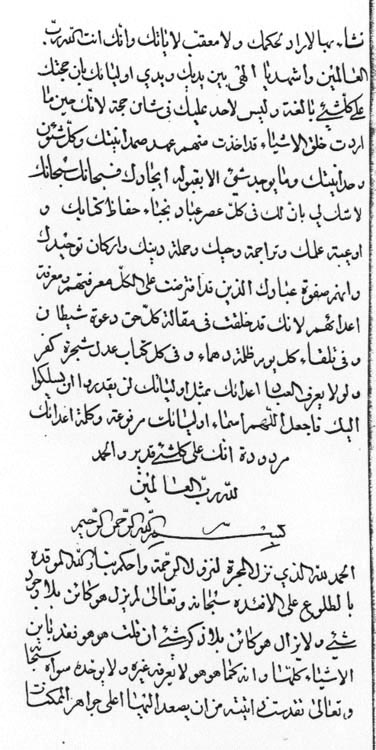 نشاء بها لا راد لحكمك ولا معقب لاياتك وانك انت الله رب
العالمين واشهد يا الهي بين يديك ويدي اوليائك بان حجتك
على كلشيئ بالغة وليس لاحد عليك في شان حجة لانك حين ما
اردت خلق الاشياء قد اخذت منهم عهد صمدانيتك وكل شئون
وحدانيتك وما يوجد شئ الا بقبوله ايجادك فسبحانك سبحانك
لا شك لي بان لك في كل عصر عباد نجباء حفاظ كتابك و
اوعية علمك وتراجمة وحيك وحملة دينك واركان توحيدك
وانهم صفوة عبادك الذين قد افترضت على الكل معرفتهم ومعرفة
اعدائهم لانك قد خلقت في مقالة كل حق دعوة شيطان
و في تلقاء كل يوم ظلة دهماء و في كل كتاب عدل شجرة كفر
ولولا يعرف العباد اعدائك بمثل اوليائك لن يقدروا ان يسلكوا
اليك فاجعل اللهم اسماء اوليائك مرفوعة وكلمة اعدائك
مردودة انك على كلشيئ قدير والحمد
لله رب العالمين
بسم الله الرحمن الرحيم
الحمد لله الذي نزل الحجرة لنزول الرحمة واحكم بنار الله الموقدة
بالطلوع على الافئدة سبحانه وتعالى لم يزل هو كائن بلا وجود
شيئ ولا يزال هو كائن بلا ذكر شيئ ان قلت هو هو نقد باين
الاشياء كلها وانه كما هو هو لا يعرفه غيره ولا يوحده سواه سبحانه
وتعالى تقدست انيته من ان يصعد اليها اعلى جواهر الممكنات